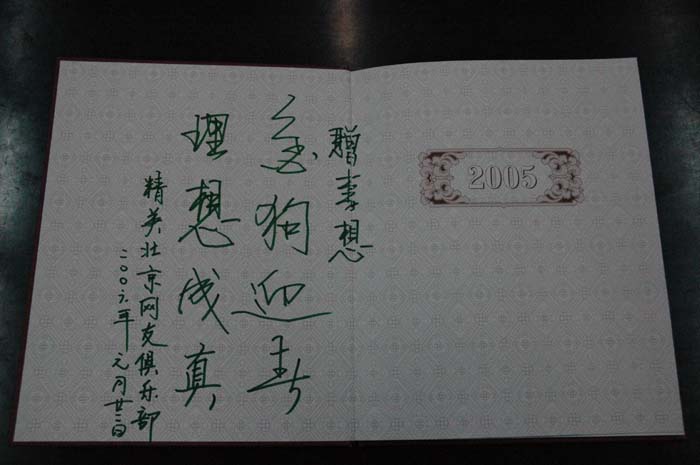 2005
赠李想
金狗迎春
理想成真
精英北京网友俱乐部
二〇〇六年元月廿二日